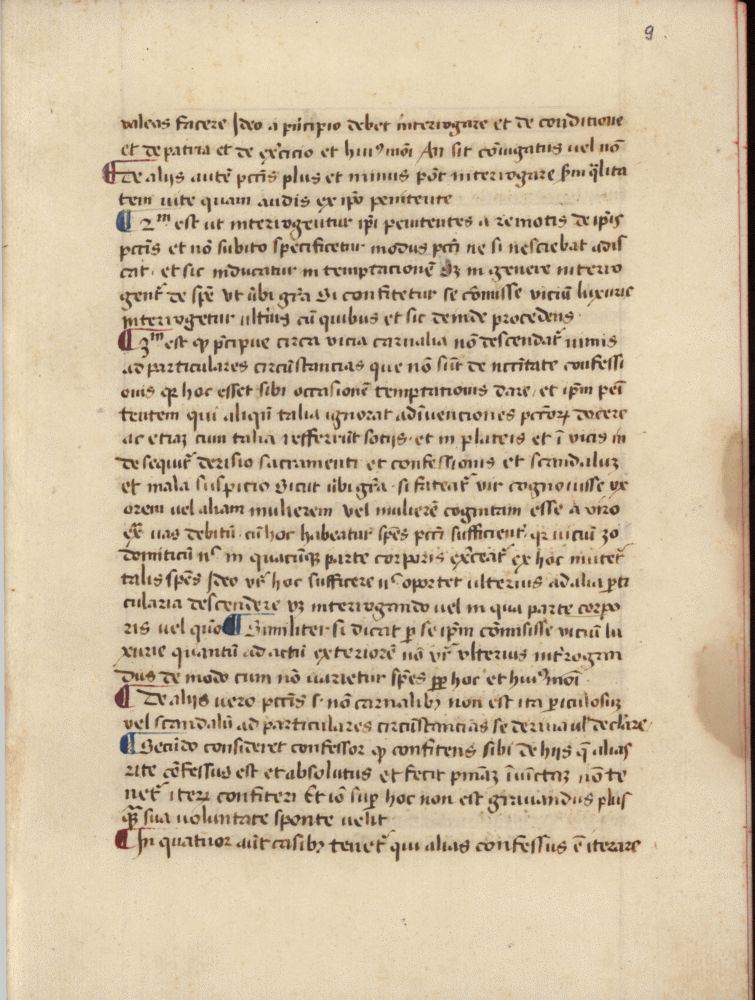 9
valeas facere Ideo a pͥncipio debet interrogare et de conditione
et de patria et de ex̄cicio et huiꝰmōi An sit cōiugatus uel nō
De alijs autē pctīs plus et minus pōt interrogare s̄m q̄lita
tem uite quam audis ex ip̄o penitente
2ᵐ est ut interrogentur ip̄i penitentes a remotis de ip̄is
pctīs et nō subito specificetur modus pctī ne si nesciebat adis
cat et sic inducatur in temptacionē Sꝫ in genere interro
gent᷑ de spē Vt ūbi grā Si confitetur se cōmisse viciū luxurie
interrogetur ulteriꝰ cū quibus et sic deinde procedens
3ᵐ est ꝙ p̄cipue circa vicia carnalia nō descendat᷑ nimis
ad particulares circūstancias que nō sūt de nccītate confessi
onis qr hoc esset sibi occasionē temptationis dare et ip̄m peī
tentem qui aliqn̄ talia ignorat adīuenciones pctōꝝ docere
ac etiaꝫ cum talia refferūt sotijs et in plateis et ī vicis in
de sequit᷑ derisio sacramenti et confessionis et scandaluꝫ
et mala suspicio Sicut ūbi grā si fateat᷑ vir cognouisse ux
orem uel aliam mulierem vel mulierē cognitam esse a viro
ex̄ uas debitū cū hoc habeatur spēs pctī sufficient᷑ qr uiciū zo
domiticū in quacūqꝫ parte corporis ex̄ceat᷑ ex hoc mutet᷑
talis spēs Ideo hoc sufficere oportet ulterius ad alia pͣti
cularia descendere vꝫ interrogando uel in qua parte corpo
ris uel quō Similiter si dicat ꝑ se ip̄m cōmisisse viciū lu
xurie quantū ad actū exteriorē nō ulterius int᷑rogan
dus de modo cum nō uarietur spēs ꝓꝑ hoc et huiꝰmōi
De alijs uero pctīs s. nō carnalibꝫ non est ita ꝑiculosuꝫ
vel scandalū ad particulares circūstancias se deriuare ul̄ declāre
Secūdo consideret confessor ꝙ confitens sibi de hijs q̄ alias
rite cōfessus est et absolutus et fecit pn̄iaꝫ iūctaꝫ nō te
net᷑ iteꝝ confiteri Et iō suꝑ hoc non est grauandus plus
qͣ̄ sua uoluntate sponte uelit
In quatuor aūt casibꝫ tenet᷑ qui alias confessus ē iterare